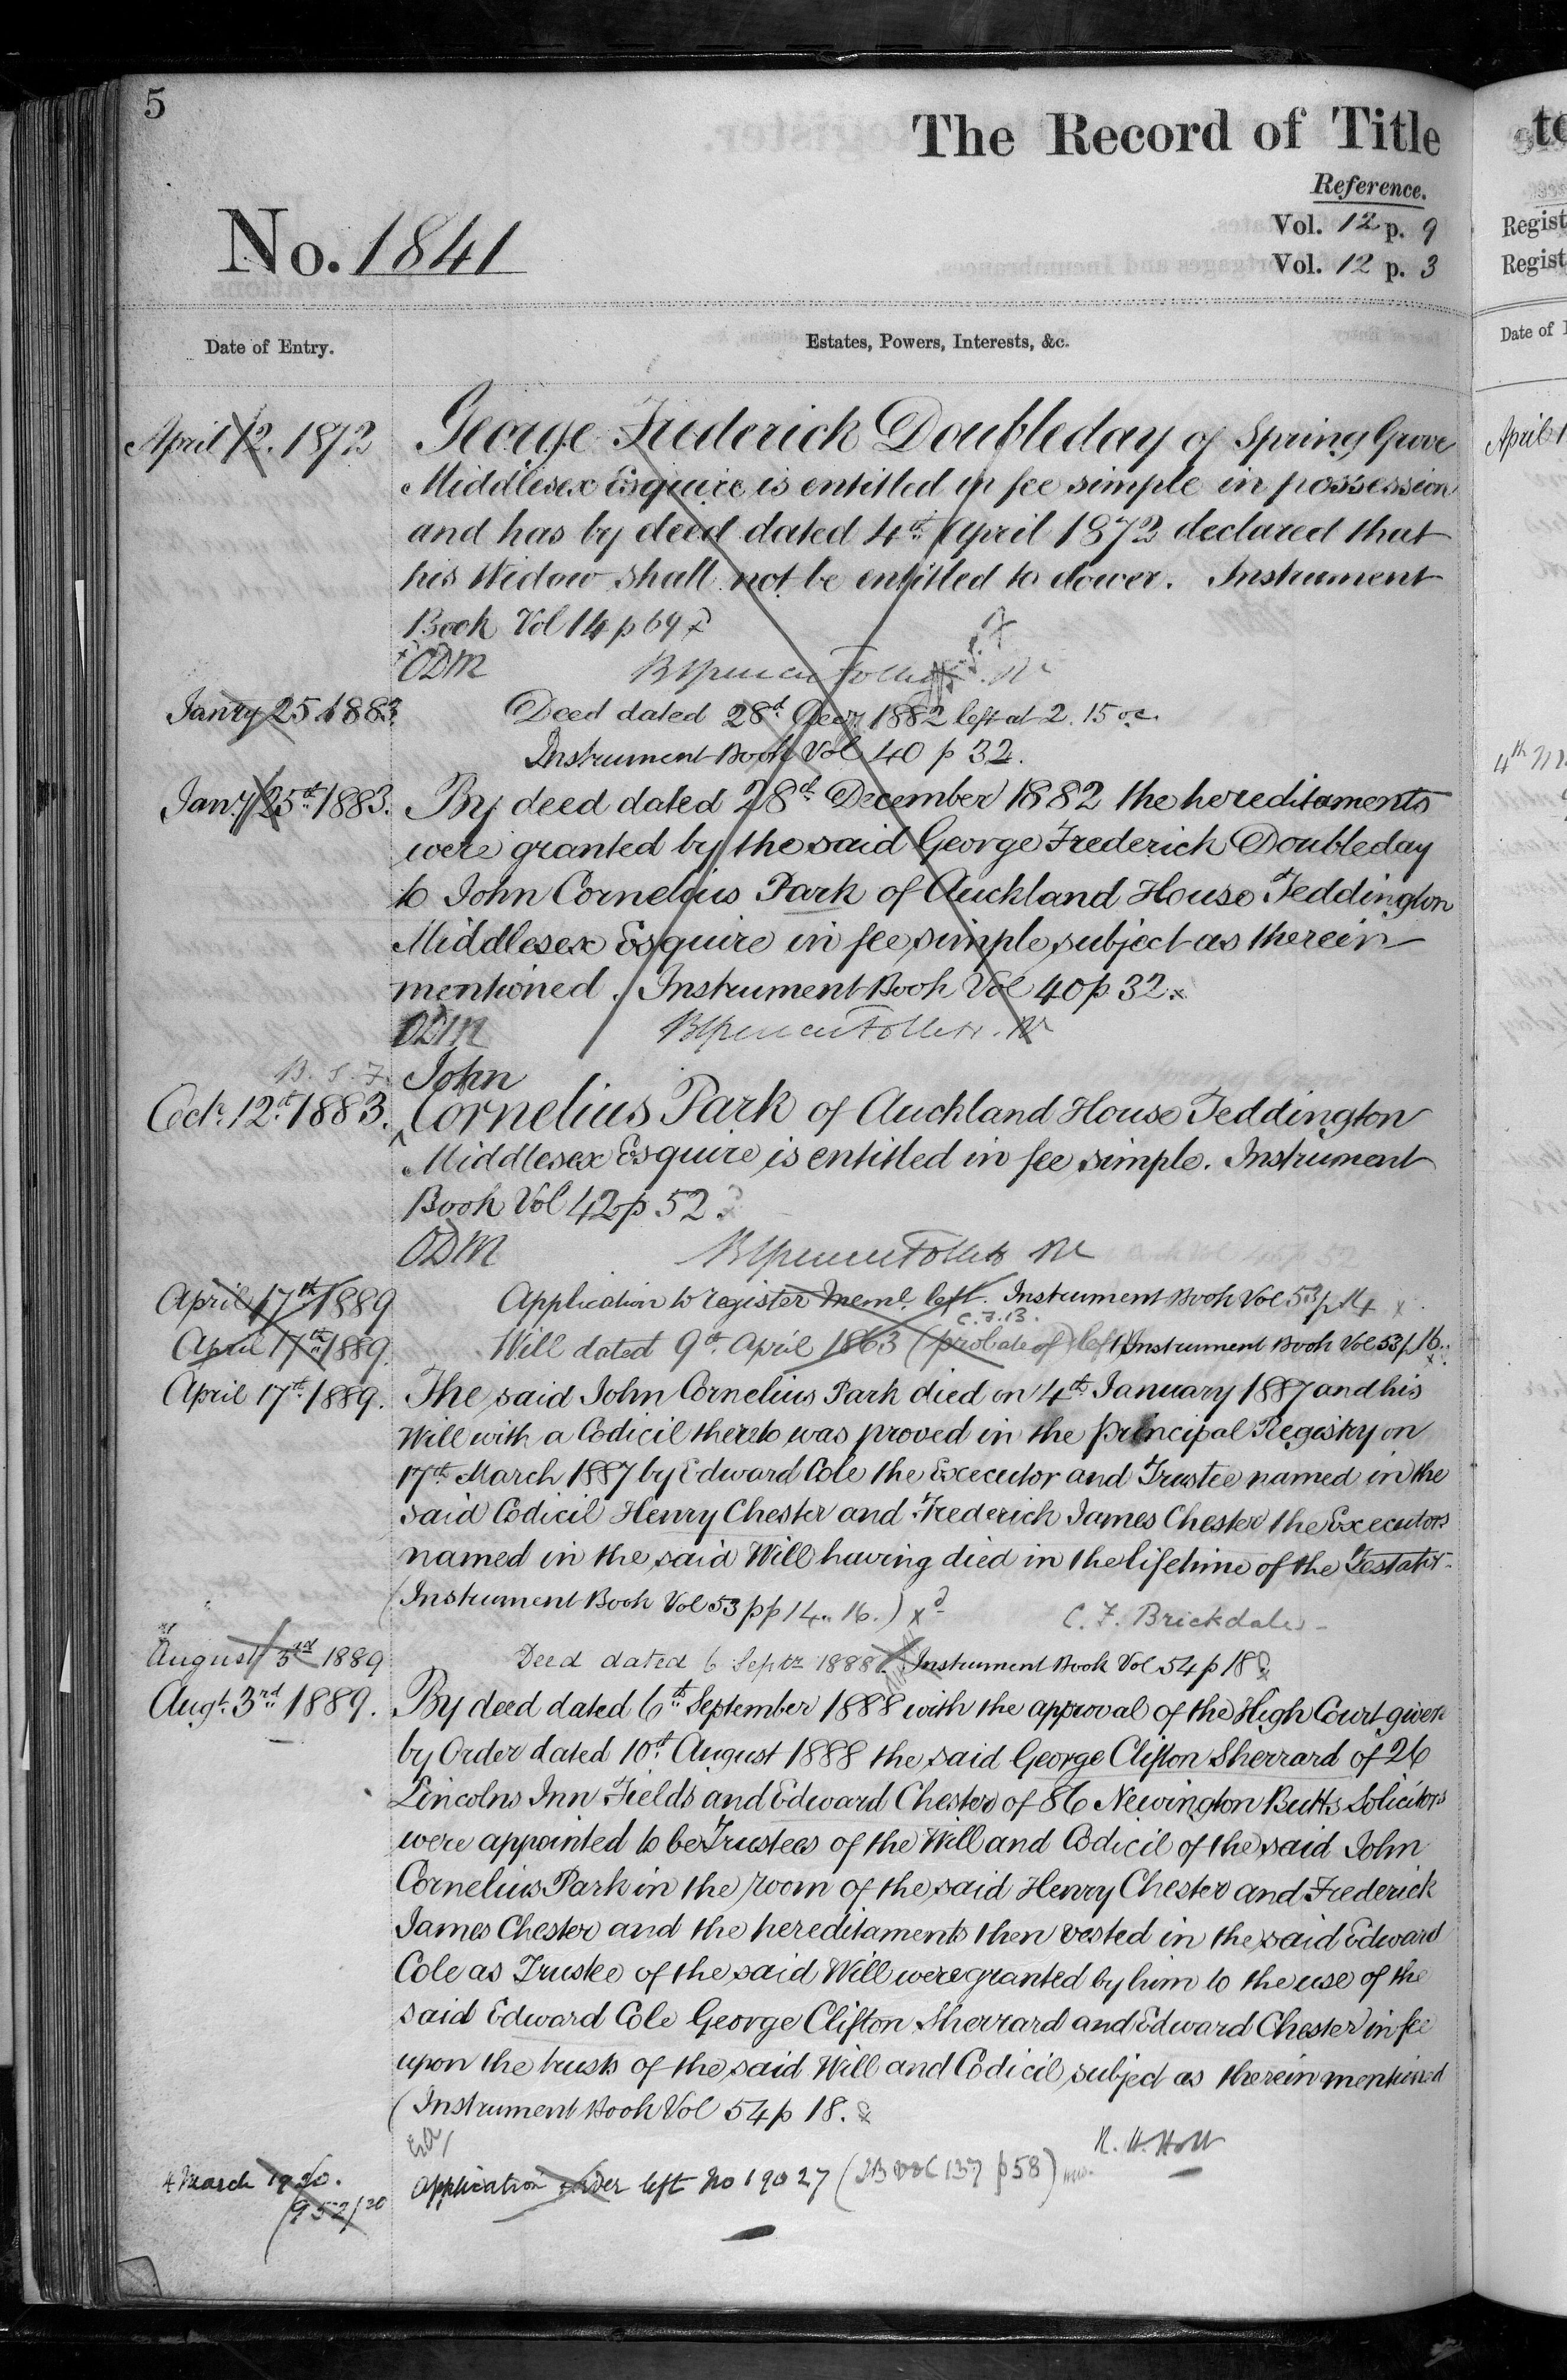 5
The Record of Title
Reference.
Vol. 12 p. 9
Vol. 12 p. 3
No. 1841
Date of Entry.
Estates, Powers, Interests, &c.
April 12. 1872 George Frederick Doubleday of Spring Grove
Middlesex Esquire is entitled in fee simple in possession
and has by deed dated 4th April 1872 declared that
his Widow shall not be entitled to dower. Instrument
Book Vol 14 p 69
ODM
Jany 25 1883. Deed dated 28th Decr. 1882 left at 2.15 oc.
Instrument Book Vol 40 p 32.
Jany. 25th 1883. By deed dated 28th December 1882 the hereditaments
were granted by the said George Frederick Doubleday
to John Cornelius Park of Auckland House Teddington
Middlesex Esquire in fee simple subject as therein
mentioned. Instrument Book Vol 40 p 32
ODM
B. S. F. John
Octr. 12th 1883. Cornelius Park of Auckland House Teddington
Middlesex Esquire is entitled in fee simple. Instrument
Book Vol 42 p 52
ODM
April 17th 1889 Application to register Meml. left. Instrument Book Vol 53 p 14
C.F.B.
April 17th 1889. Will dated 9th April 1863 (probate of) left Instrument Book Vol 53 p 16.
April 17th 1889. The said John Cornelius Park died on 4th January 1887 and his
Will with a Codicil thereto was proved in the Principal Registry on
17th March 1887 by Edward Cole the Executor and Trustee named in the
said Codicil Henry Chester and Frederick James Chester the Executors
named in the said Will having died in the lifetime of the Testator
(Instrument Book Vol 53 pp 14 .. 16.)
C. F. Brickdale
August 3rd 1889 Deed dated 6 Septr 1888 Instrument Book Vol 54 p 18
Augt. 3rd 1889. By deed dated 6th September 1888 with the approval of the High Court given
by Order dated 10th August 1888 the said George Clifton Sherrard of 26
Lincolns Inn Fields and Edward Chester of 86 Newington Butts Solicitors
were appointed to be Trustees of the Will and Codicil of the said John
Cornelius Park in the room of the said Henry Chester and Frederick
James Chester and the hereditaments then vested in the said Edward
Cole as Trustee of the said Will were granted by him to the use of the
said Edward Cole George Clifton Sherrard and Edward Chester in fee
upon the trusts of the said Will and Codicil subject as therein mentioned
(Instrument Book Vol 54 p 18.
4 March 1920. Application order left No 19027 (IB Vol 137 p 58)
(952/20
to
Regist
Regist
Date of
April 1
4th